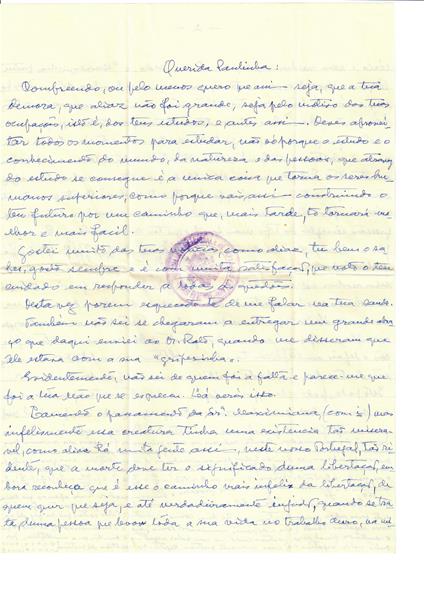 Querida Paulinha:
Compreendo, ou pelo menos quero que assim seja, que a tua
demora, que aliaz não foi grande, seja pelo motivo das tuas
ocupações, isto é, dos teus estudos, e antes assim. Deves aprovei-
tar todos os momentos para estudar, não só porque o estudo e o
conhecimento do mundo, da natureza e das pessoas, que atravez
do estudo se consegue é a unica coisa que torna os seres hu-
manos superiores, como porque vais assim construindo o
teu futuro por um caminho que, mais tarde, to tornará me-
lhor e mais facil.
Gostei muito das tuas noticias, como aliaz, tu bem o sa-
bes, gosto sempre e é com muita satisfação, que noto o teu
cuidado em responder a toda a
Desta vez porem esqueceu-se de me falar na tua saude.
Tambem não sei se chegaram a entregar um grande abra-
ço que daqui enviei ao Dr. Rato, quando me disseram que
ele estava com a sua «gripezinha».
Evidentemente, não sei de quem foi a falta e parece-me que
foi a tua Mãe que se esqueceu. Lá verei isso.
Lamento o passamento da Srª. Maximiana (com x) mas
infelizmente essa creatura tinha uma existencia tão mise-
ravel, como aliaz há muita gente assim, neste nosso Portugal, tão ri-
dente, que a morte deve ter o significado duma libertação, em-
bora reconheça que é esse o caminho mais infeliz da libertação, de
quem quer que seja, e até verdadeiramente injusto, quando se tra-
ta, duma pessoa que levou toda a sua vida no trabalho duro, na mi-